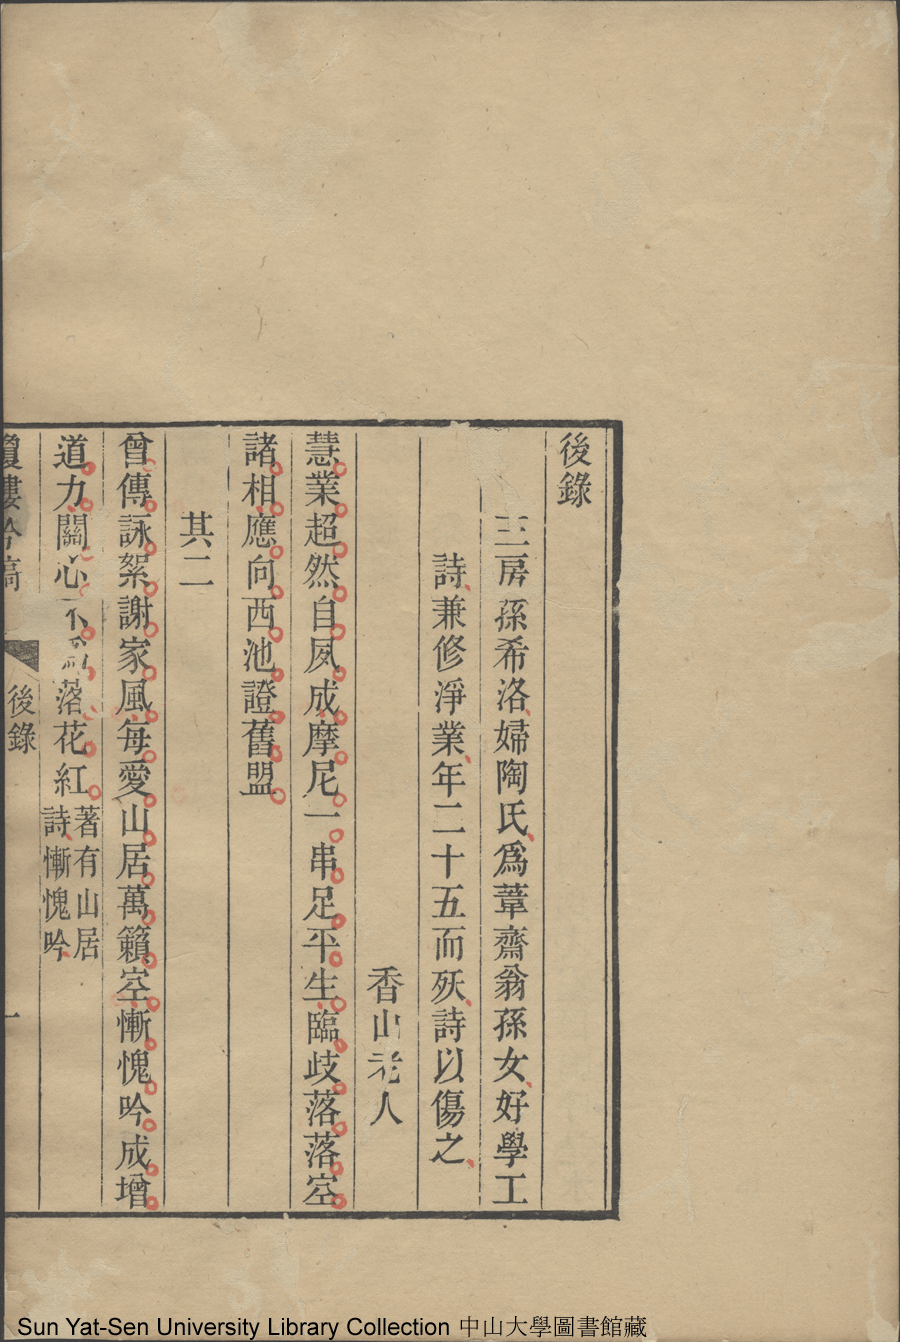 後錄
三房孫希洛婦陶氏爲葦齋翁孫女好學工
詩兼修淨業年二十五而殀詩以傷之
香山老人
慧業超然自夙成摩尼一串足平生臨歧落落空
諸相應向西池證舊盟
其二
曾傳詠絮謝家風每愛山居萬籟空慚愧吟成增
道力關心不爲落花紅
著有山居
詩慚愧吟
瓊樓吟稿
後錄
一
Sun Yat-Sen University Library Collection 中山大學圖書館藏